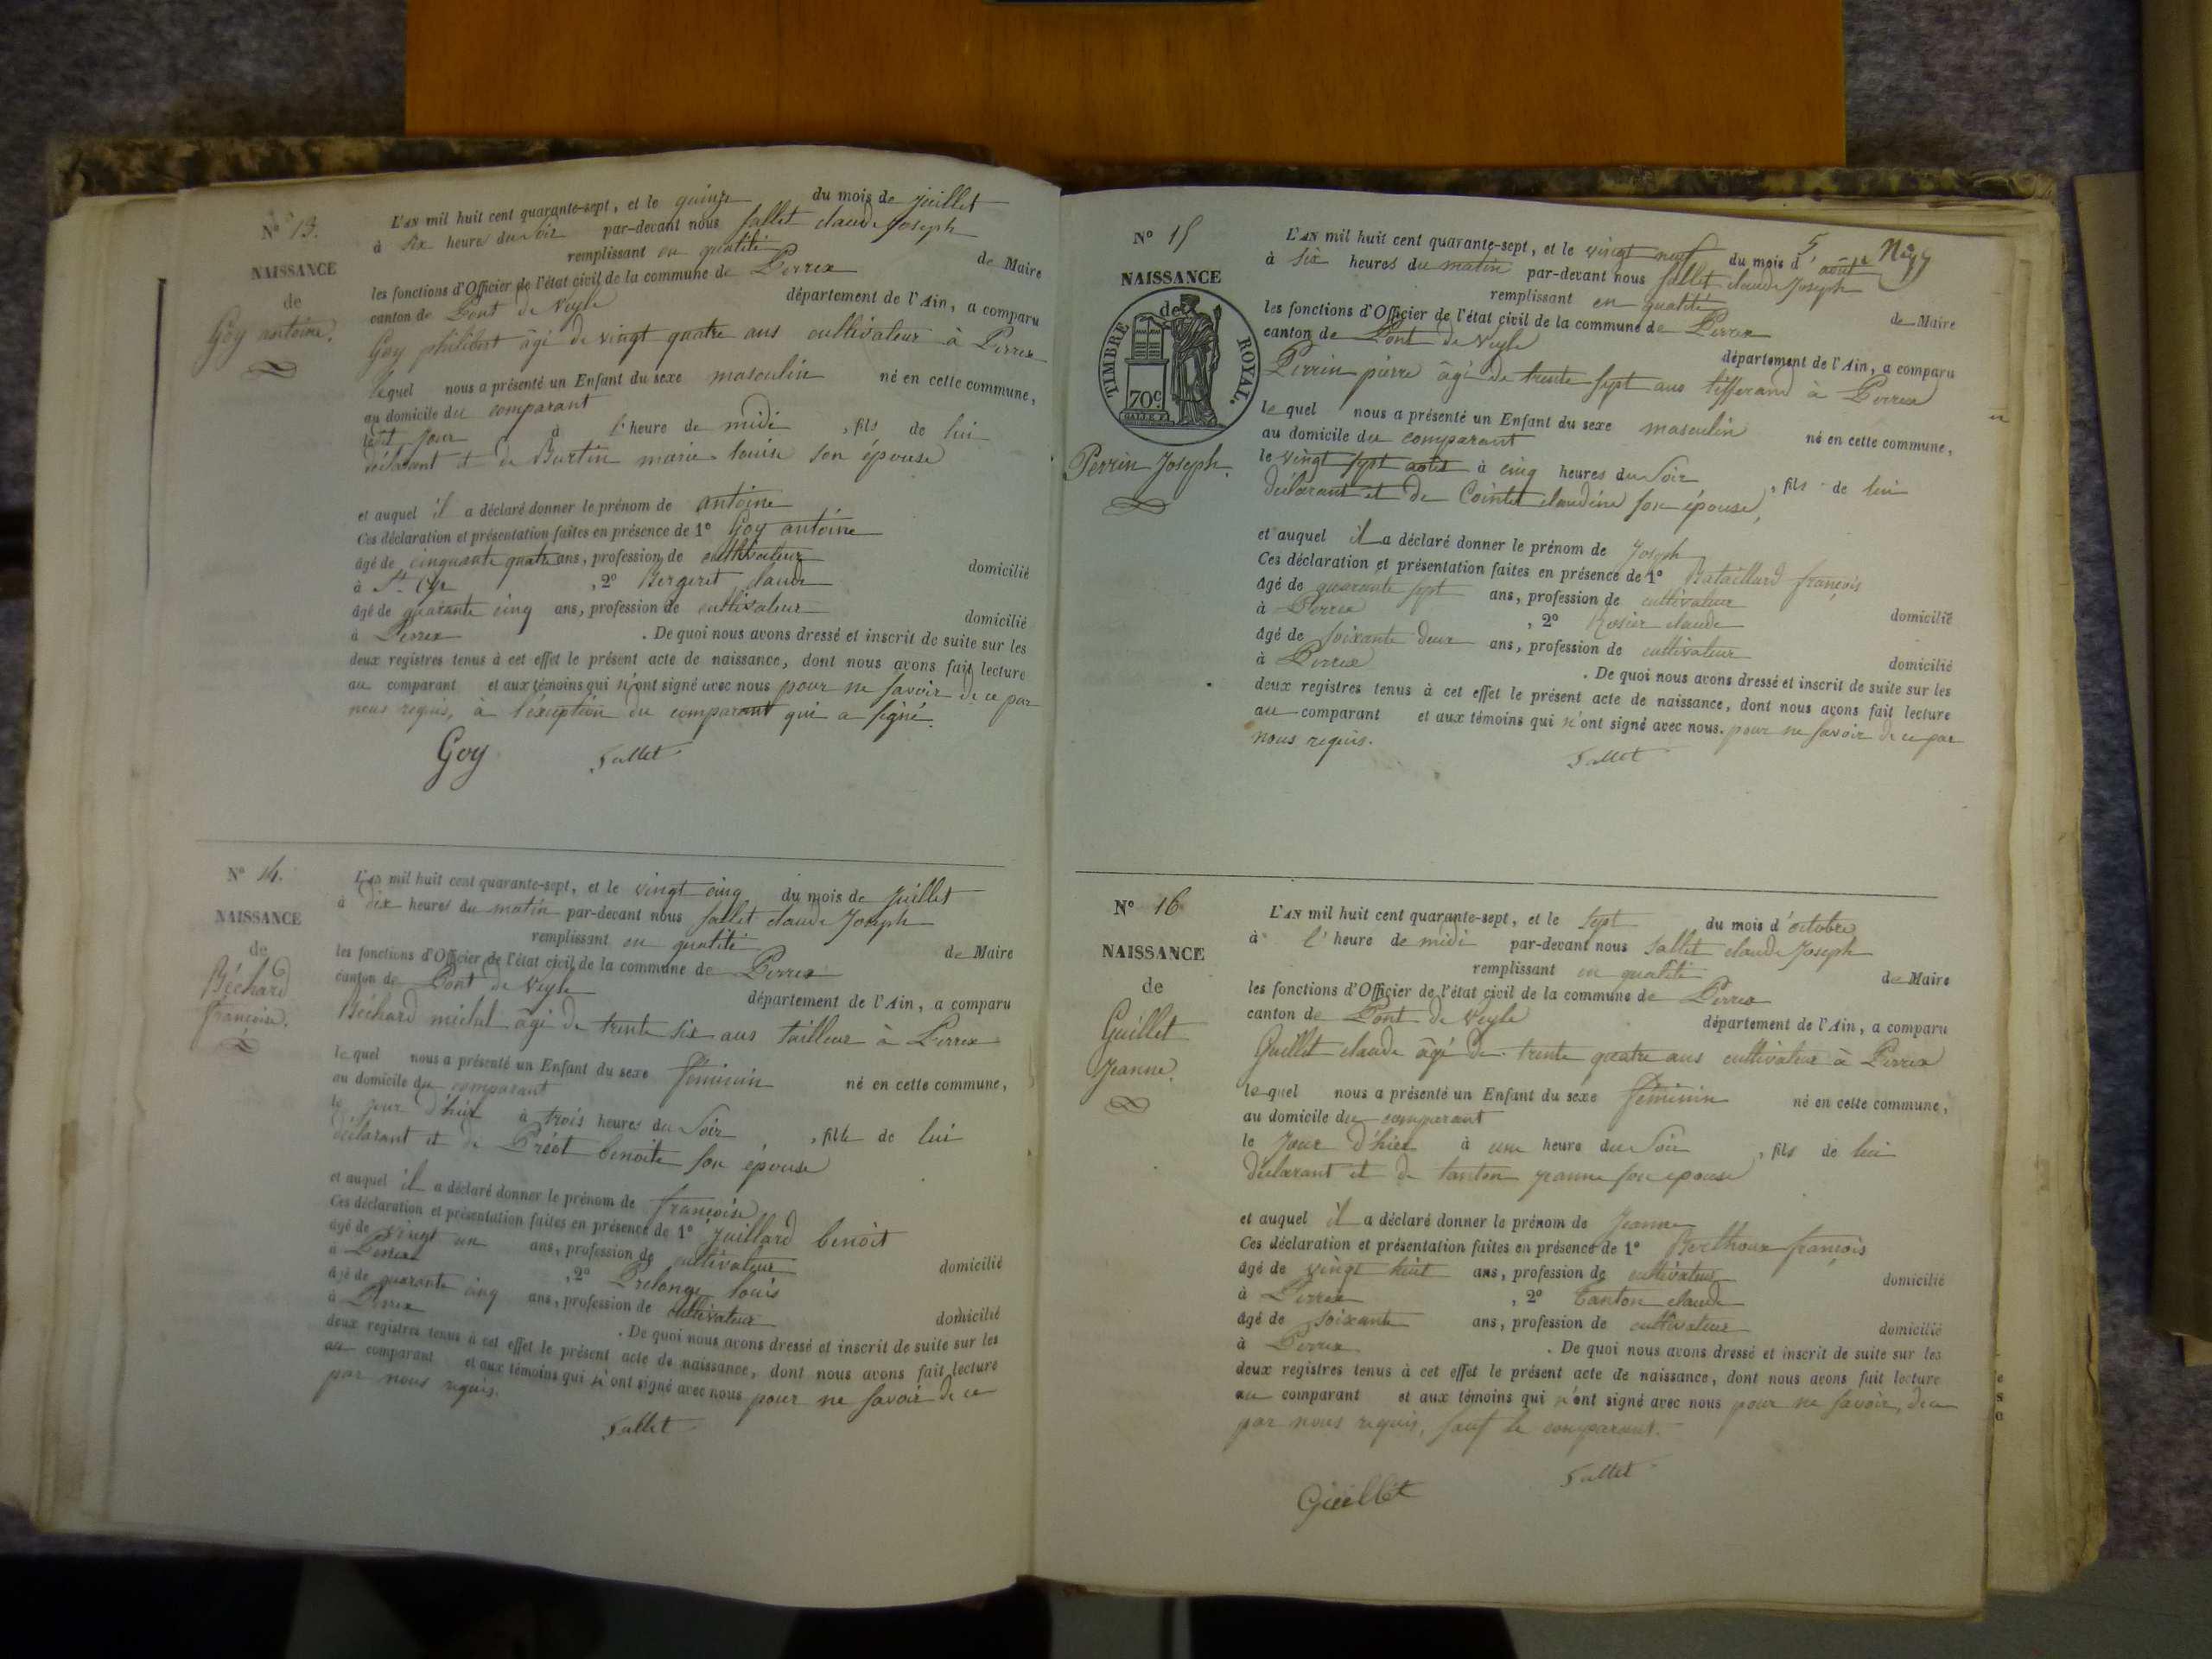 N° 13.
NAISSANCE
de
Goy antoine.
L'AN mil huit cent quarante-sept, et le quinze du mois de juillet
à six heures du soir par-devant nous Sallet claude Joseph
remplissant en qualité de Maire
les fonctions d'Officier de l'état civil de la commune de Perrex
canton de Pont de Veyle département de l'Ain, a comparu
Goy philibert âgé de vingt quatre ans cultivateur à Perrex
lequel nous a présenté un Enfant du sexe masculin né en cette commune,
au domicile du comparant
ledit jour à l'heure de midi, fils de lui
déclarant et de Burtin marie louise son épouse
et auquel il a déclaré donner le prénom de antoine
Ces déclaration et présentation faites en présence de 1° Goy antoine
âgé de cinquante quatre ans, profession de cultivateur domicilié
à St Cyr, 2° Bergeret claude
âgé de quarante cinq ans, profession de cultivateur domicilié
à Perrex. De quoi nous avons dressé et inscrit de suite sur les
deux registres tenus à cet effet le présent acte de naissance, dont nous avons fait lecture
au comparant et aux témoins qui n'ont signé avec nous pour ne savoir de ce par
nous requis, à l'éxception du comparant qui a signé.
Goy Sallet
N° 14.
NAISSANCE
de
Béchard
françoise.
L'AN mil huit cent quarante-sept, et le vingt cinq du mois de Juillet
à dix heures du matin par-devant nous Sallet claude Joseph
remplissant en qualité de Maire
les fonctions d'Officier de l'état civil de la commune de Perrex
canton de Pont de Veyle département de l'Ain, a comparu
Béchard michel âgé de trente six ans tailleur à Perrex
lequel nous a présenté un Enfant du sexe féminin né en cette commune,
au domicile du comparant
le jour d'hier à trois heures du Soir, fille de lui
déclarant et de Préot benoite son épouse
et auquel il a déclaré donner le prénom de françoise
Ces déclaration et présentation faites en présence de 1° Juillard benoit
âgé de vingt un ans, profession de cultivateur domicilié
à Perrex, 2° Prelonge louis
âgé de quarante cinq ans, profession de cultivateur domicilié
à Perrex. De quoi nous avons dressé et inscrit de suite sur les
deux registres tenus à cet effet le présent acte de naissance, dont nous avons fait lecture
au comparant et aux témoins qui n'ont signé avec nous pour ne savoir de ce
par nous requis.
Sallet
5
N° 15
NAISSANCE
de
TIMBRE ROYAL.
70c.
Perrin Joseph.
L'AN mil huit cent quarante-sept, et le vingt neuf du mois d'août
à six heures du matin par-devant nous Sallet claude Joseph
remplissant en qualité de Maire
les fonctions d'Officier de l'état civil de la commune de Perrex
canton de Pont de Veyle département de l'Ain, a comparu
Perrin pierre âgé de trente sept ans tisserand à Perrex
lequel nous a présenté un Enfant du sexe masculin né en cette commune,
au domicile du comparant
le vingt sept août à cinq heures du Soir, fils de lui
déclarant et de Cointet claudine son épouse,
et auquel il a déclaré donner le prénom de Joseph
Ces déclaration et présentation faites en présence de 1° Bataillard françois
âgé de quarante sept ans, profession de cultivateur domicilié
à Perrex, 2° Rosier claude
âgé de soixante deux ans, profession de cultivateur domicilié
à Perrex. De quoi nous avons dressé et inscrit de suite sur les
deux registres tenus à cet effet le présent acte de naissance, dont nous avons fait lecture
au comparant et aux témoins qui n'ont signé avec nous. pour ne savoir de ce par
nous requis.
Sallet
N° 16
NAISSANCE
de
Guillet
Jeanne.
L'AN mil huit cent quarante-sept, et le sept du mois d'octobre
à l'heure de midi par-devant nous Sallet claude Joseph
remplissant en qualité de Maire
les fonctions d'Officier de l'état civil de la commune de Perrex
canton de Pont de Veyle département de l'Ain, a comparu
Guillet claude âgé de trente quatre ans cultivateur à Perrex
lequel nous a présenté un Enfant du sexe féminin né en cette commune,
au domicile du comparant
le Jour d'hier à une heure du Soir, fils de lui
déclarant et de tanton jeanne son épouse
et auquel il a déclaré donner le prénom de Jeanne
Ces déclaration et présentation faites en présence de 1° Berthoux françois
âgé de vingt huit ans, profession de cultivateur domicilié
à Perrex, 2° tanton claude
âgé de soixante ans, profession de cultivateur domicilié
à Perrex. De quoi nous avons dressé et inscrit de suite sur les
deux registres tenus à cet effet le présent acte de naissance, dont nous avons fait lecture
au comparant et aux témoins qui n'ont signé avec nous pour ne savoir, de ce
par nous requis, sauf le comparant.
Guillet Sallet